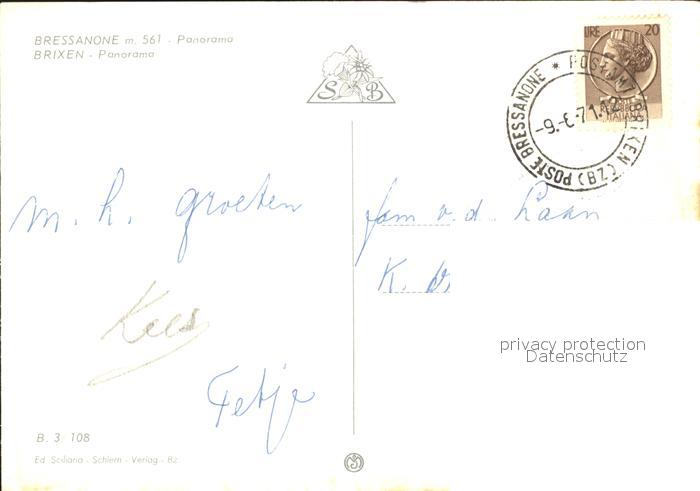 BRESSANONE m. 561 - Panorama
BRIXEN - Panorama
S B
LIRE 20
POSTE BRESSANONE * POSTAMT BRIXEN (BZ)
-9.-6.71.
REPUBBLICA
ITALIANA
m. h. groeten
Kees
Fetje
fam v.d. Laan
K. d.
privacy protection
Datenschutz
B. 3/108
Ed. Sciliana - Schlern - Verlag - Bz.